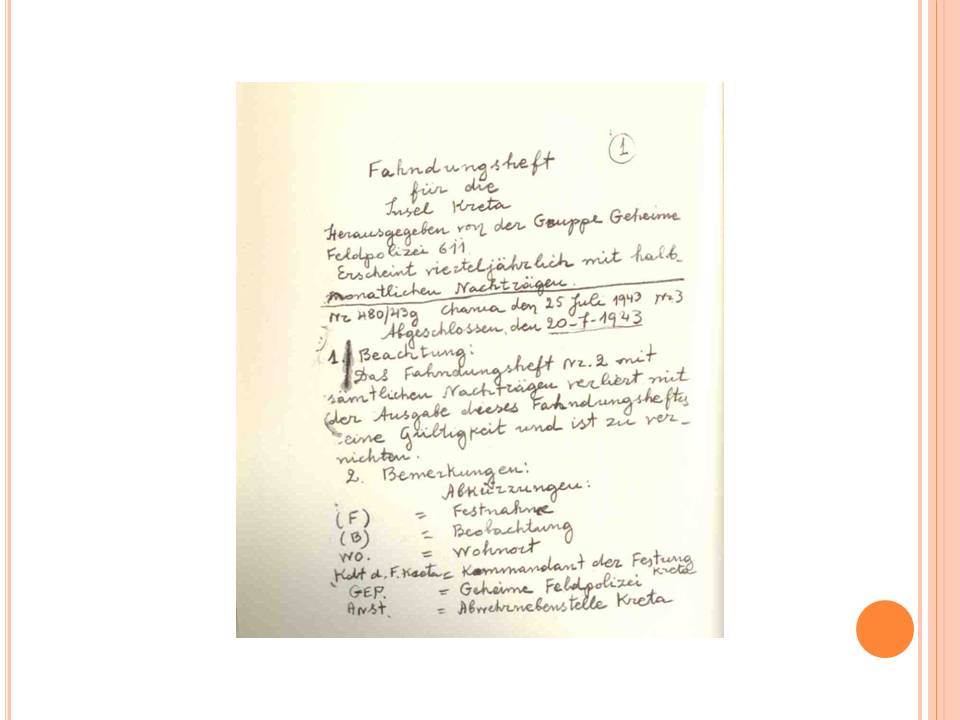 1
Fahndungsheft
für die
Insel Kreta
Herausgegeben von der Gruppe Geheime
Feldpolizei 611
Erscheint vierteljährlich mit halb-
monatlichen Nachträgen.
Nr 480/43g Chania den 25 Juli 1943 Nr 3
Abgeschlossen, den 20-7-1943
1. Beachtung:
Das Fahndungsheft Nr. 2 mit
sämtlichen Nachträgen verliert mit
der Ausgabe dieses Fahndungsheftes
seine Gültigkeit und ist zu ver-
nichten.
2. Bemerkungen:
Abkürzungen:
(F) = Festnahme
(B) = Beobachtung
Wo. = Wohnort
Kdt d. F. Kreta = Kommandant der Festung
Kreta
GEP. = Geheime Feldpolizei
Anst. = Abwehrnebenstelle Kreta